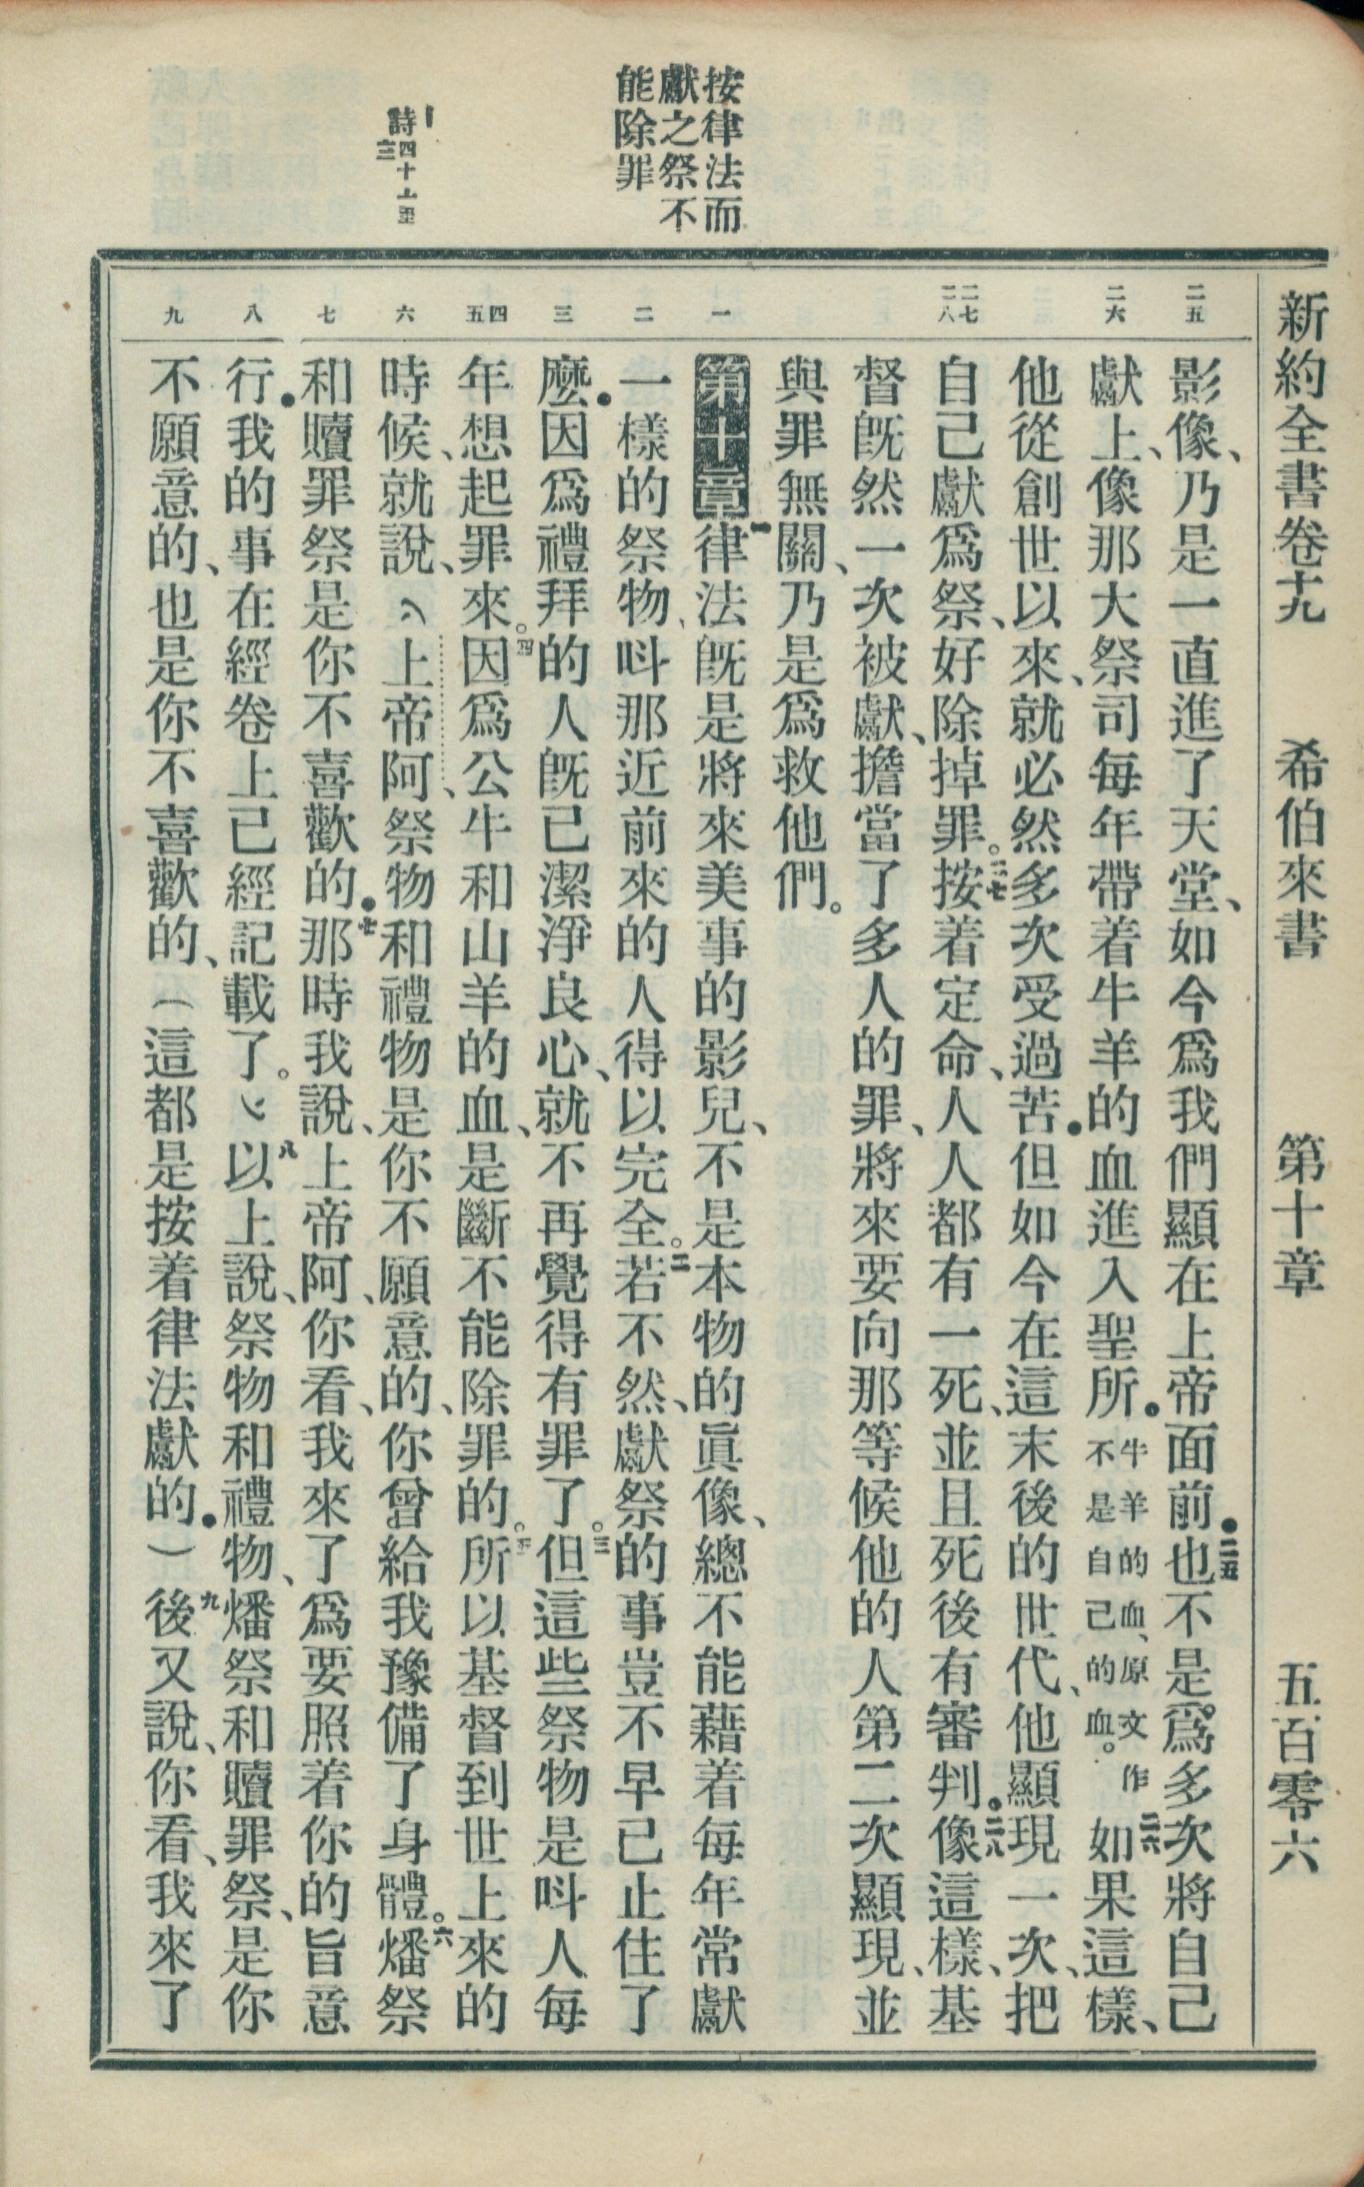 新約全書卷十九 希伯來書 第十章 五百零六
按律法而
獻之祭不
能除罪
詩四十六至
三
二五
二六
二七
二八
一
二
三
四
五
六
七
八
九
影像、乃是一直進了天堂、如今爲我們顯在上帝面前．二五也不是爲多次將自己
獻上、像那大祭司每年帶着牛羊的血進入聖所。牛羊的血、原文作不是自己的血。二六如果這樣、
他從創世以來、就必然多次受過苦．但如今在這末後的世代、他顯現一次、把
自己獻爲祭、好除掉罪。二七按着定命、人人都有一死、並且死後有審判．二八像這樣、基
督旣然一次被獻、擔當了多人的罪、將來要向那等候他的人第二次顯現、並
與罪無關、乃是爲救他們。
第十章一律法旣是將來美事的影兒、不是本物的眞像、總不能藉着每年常獻
一樣的祭物、呌那近前來的人得以完全。二若不然、獻祭的事豈不早已止住了
麼．因爲禮拜的人旣已潔淨良心、就不再覺得有罪了。三但這些祭物是呌人每
年想起罪來。四因爲公牛和山羊的血、是斷不能除罪的。五所以基督到世上來的
時候、就說、上帝阿、祭物和禮物是你不願意的、你曾給我豫備了身體。六燔祭
和贖罪祭是你不喜歡的．七那時我說、上帝阿、你看、我來了、爲要照着你的旨意
行．我的事在經卷上已經記載了。八以上說、祭物和禮物、燔祭和贖罪祭、是你
不願意的、也是你不喜歡的、（這都是按着律法獻的．）九後又說、你看、我來了